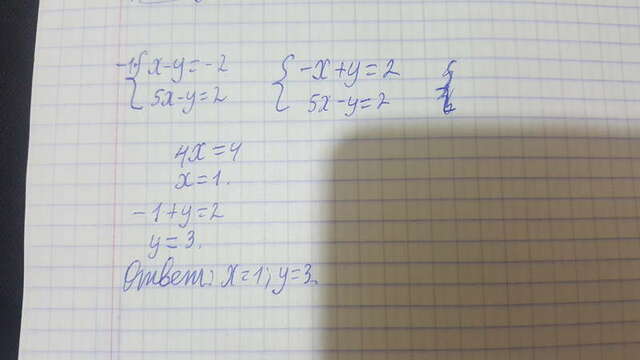 -1·{ x-y=-2
{ 5x-y=2
{ -x+y=2
5x-y=2
4x=4
x=1.
-1+y=2
y=3.
Ответ: x=1; y=3